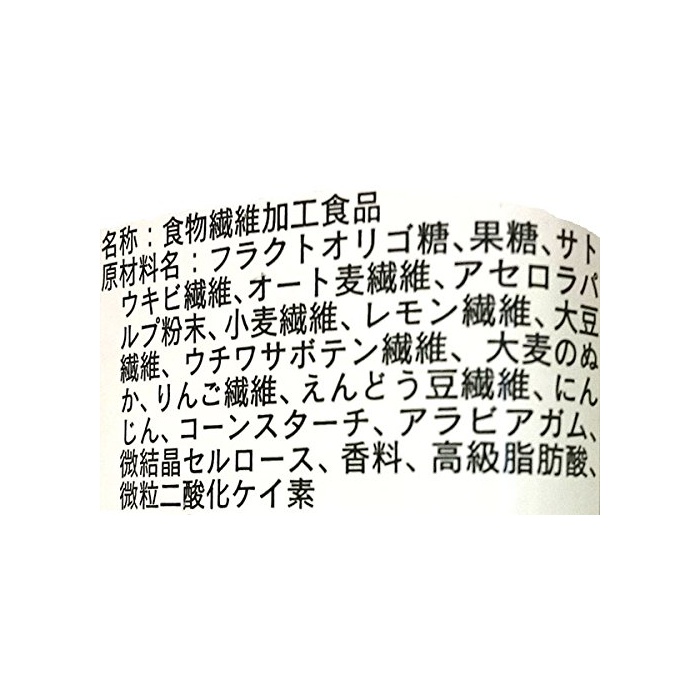 名称：食物繊維加工食品
原材料名：フラクトオリゴ糖、果糖、サト
ウキビ繊維、オート麦繊維、アセロラパ
ルプ粉末、小麦繊維、レモン繊維、大豆
繊維、ウチワサボテン繊維、大麦のぬ
か、りんご繊維、えんどう豆繊維、にん
じん、コーンスターチ、アラビアガム、
微結晶セルロース、香料、高級脂肪酸、
微粒二酸化ケイ素